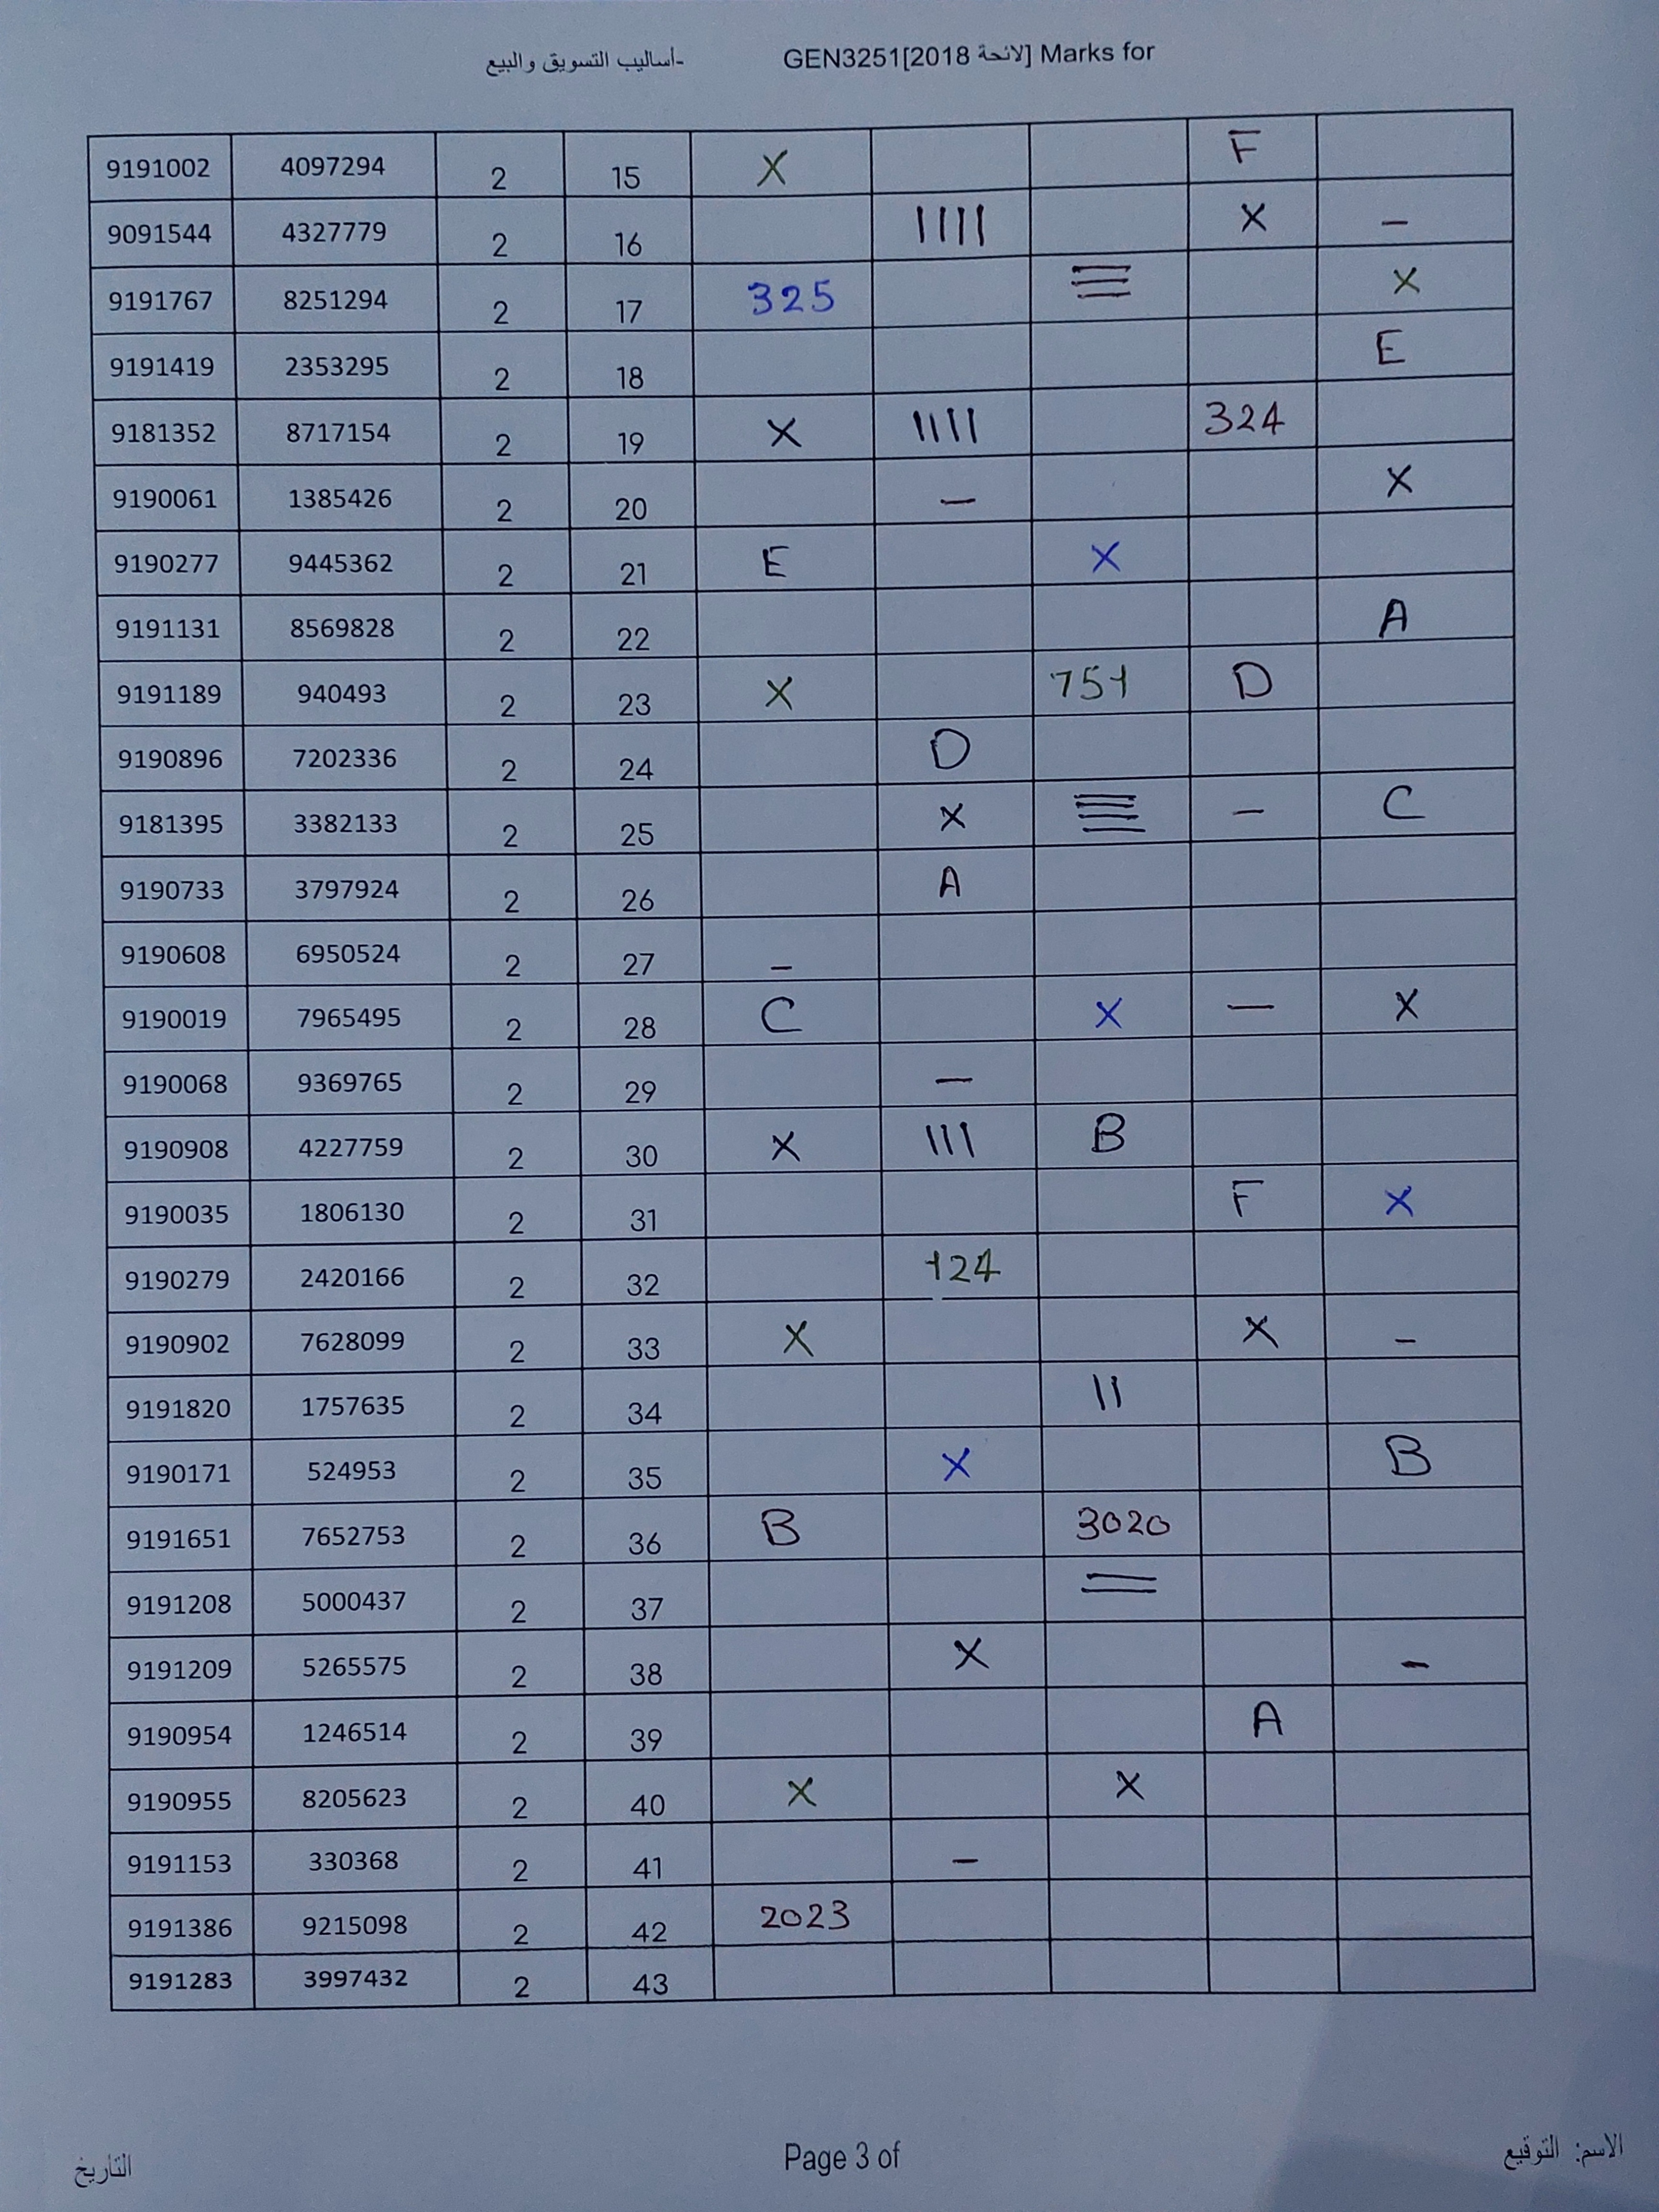 -أساليب التسويق والبيع GEN3251[2018 لائحة] Marks for
9191002 4097294 2 15 X F
9091544 4327779 2 16 |||| X –
9191767 8251294 2 17 325 ☰ X
9191419 2353295 2 18 E
9181352 8717154 2 19 X |||| 324
9190061 1385426 2 20 – X
9190277 9445362 2 21 E X
9191131 8569828 2 22 A
9191189 940493 2 23 X 751 D
9190896 7202336 2 24 D
9181395 3382133 2 25 X ≣ – C
9190733 3797924 2 26 A
9190608 6950524 2 27 –
9190019 7965495 2 28 C X – X
9190068 9369765 2 29 –
9190908 4227759 2 30 X ||| B
9190035 1806130 2 31 F X
9190279 2420166 2 32 124
9190902 7628099 2 33 X X –
9191820 1757635 2 34 ||
9190171 524953 2 35 X B
9191651 7652753 2 36 B 3020
9191208 5000437 2 37 =
9191209 5265575 2 38 X –
9190954 1246514 2 39 A
9190955 8205623 2 40 X X
9191153 330368 2 41 –
9191386 9215098 2 42 2023
9191283 3997432 2 43
التاريخ Page 3 of الاسم: التوقيع